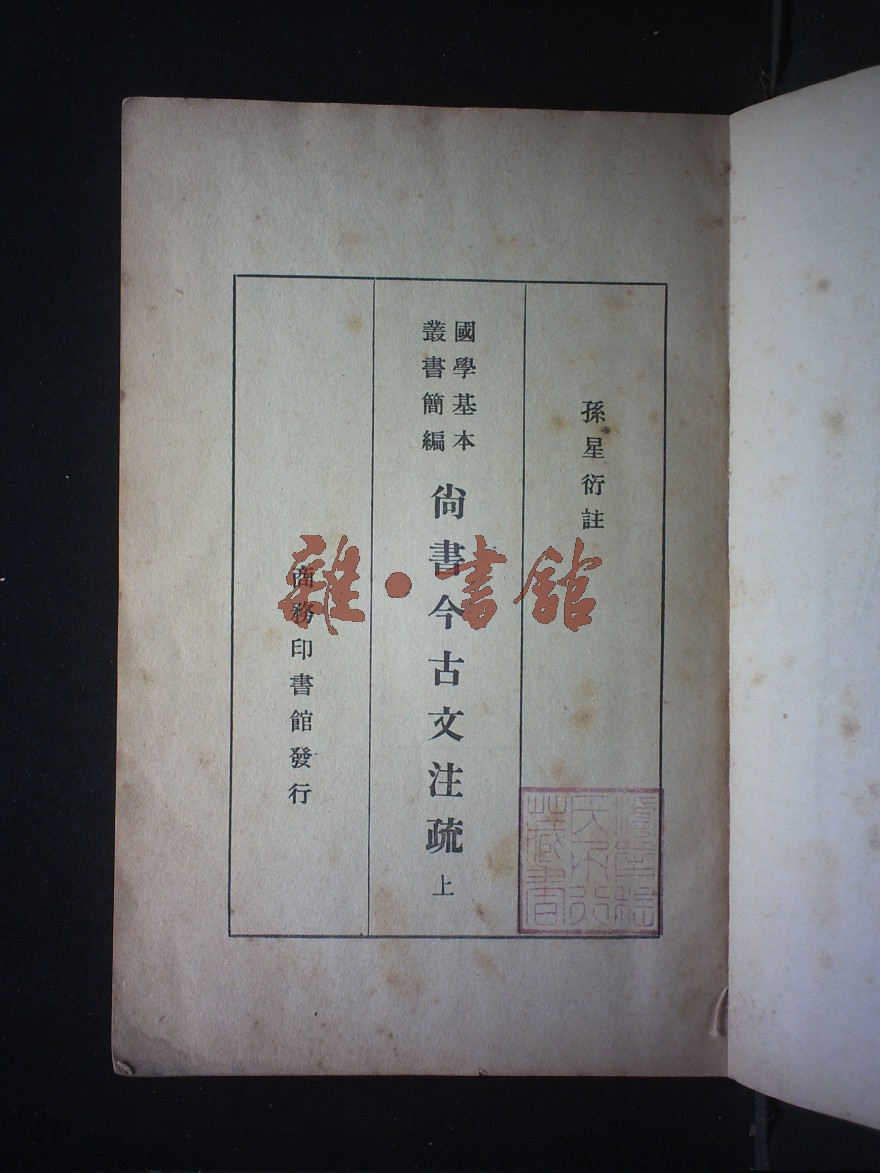 孫星衍註
國學基本
叢書簡編
尙書今古文注疏 上
商務印書館發行
雜·書館